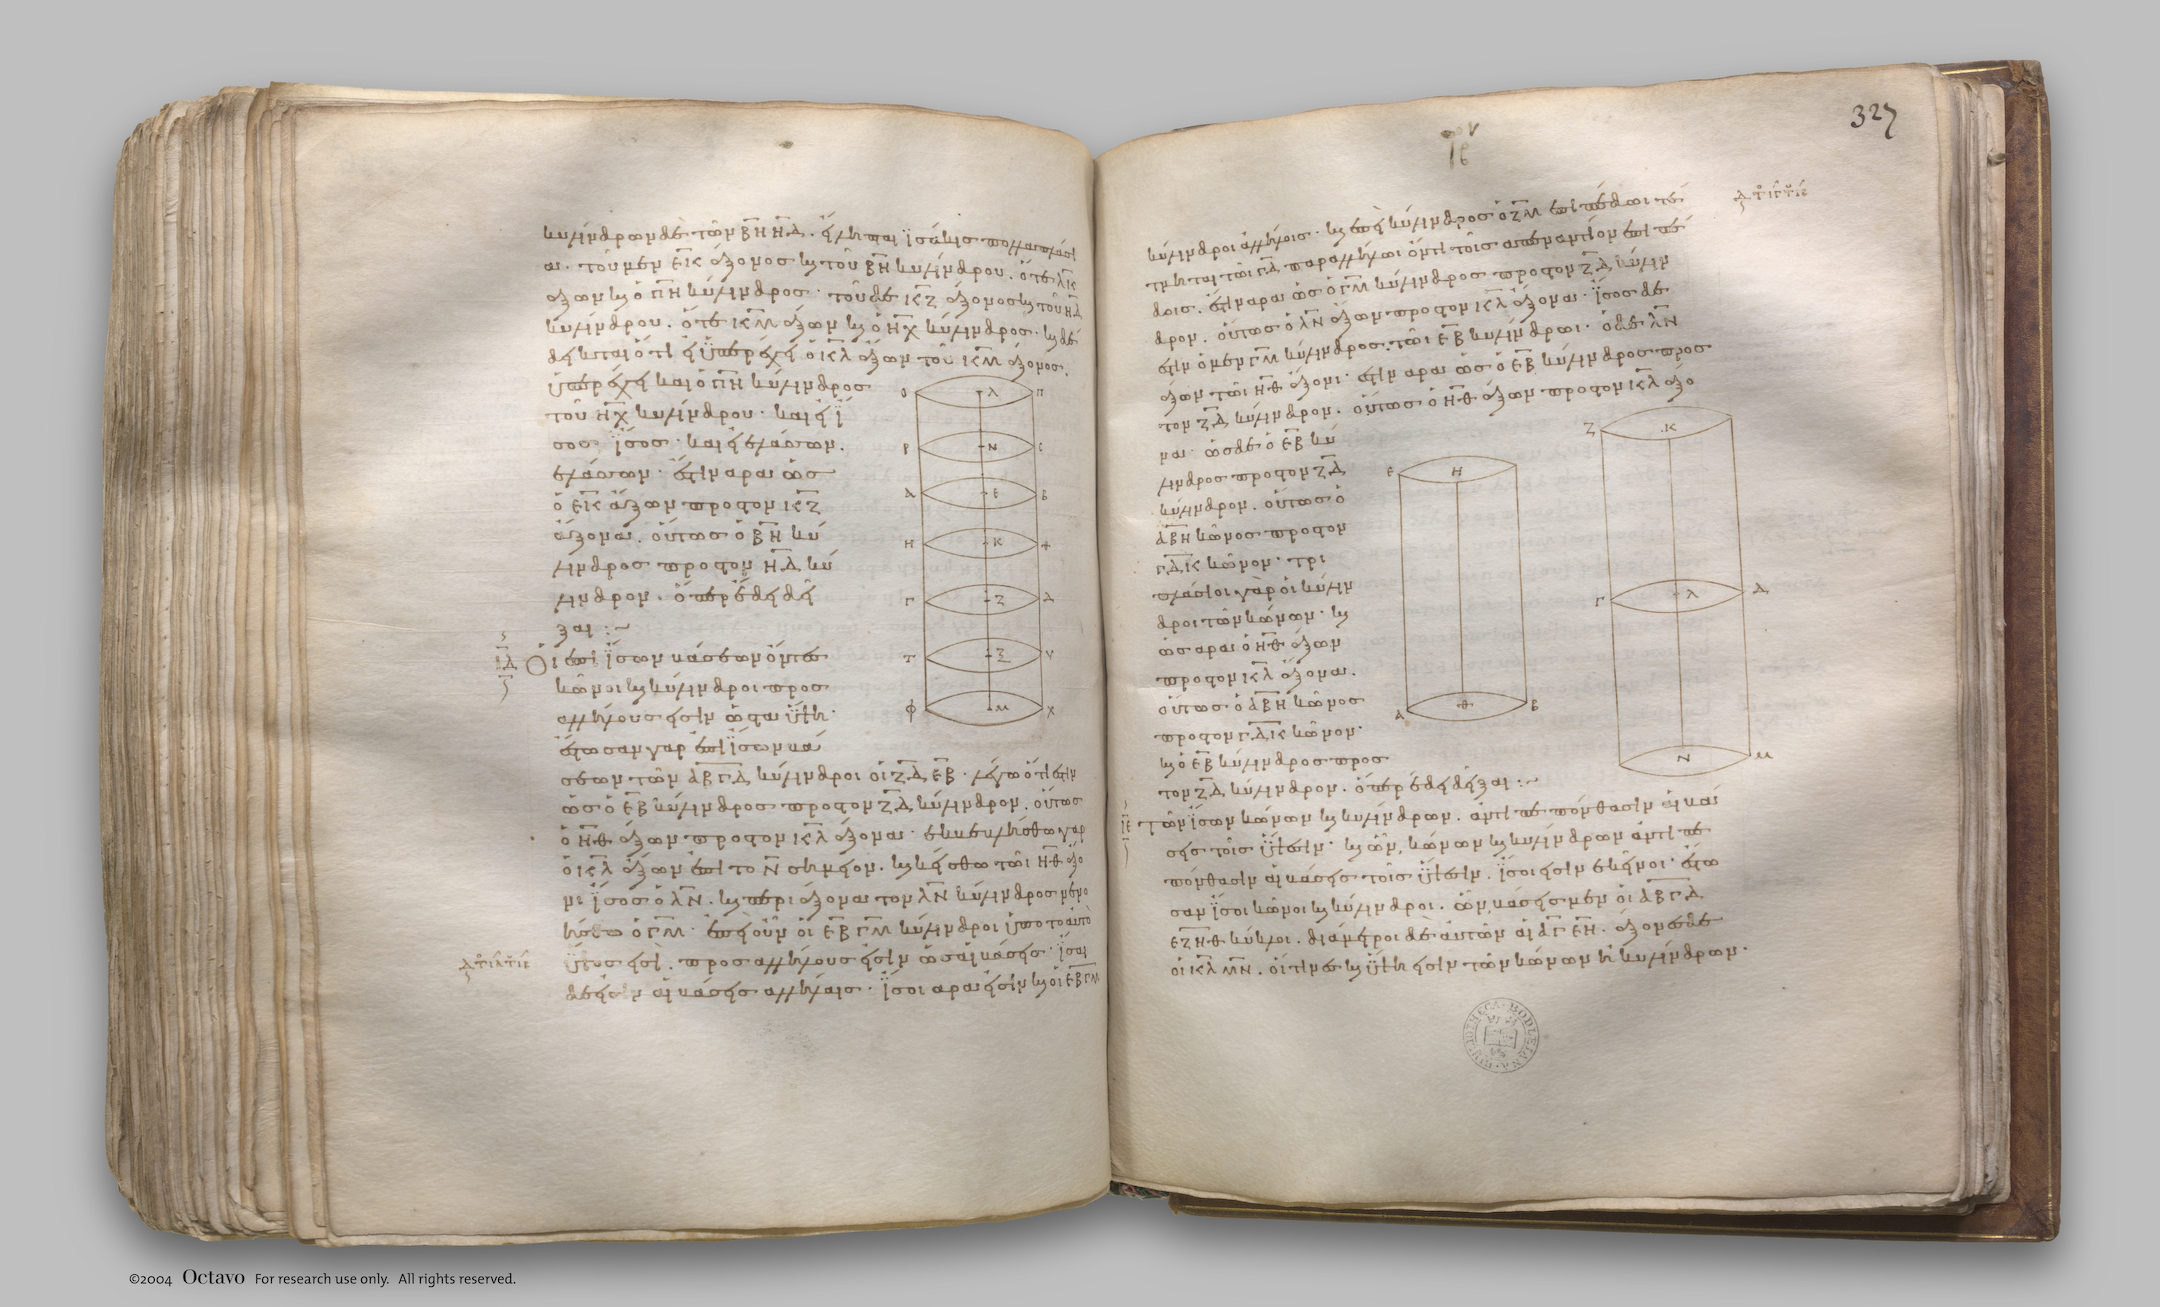 κυλίνδρων δὲ τῶν ΒΗ ΗΔ. εἴληπται ἰσάκις πολλαπλάσι
α. τοῦ μὲν ΕΚ ἄξονος καὶ τοῦ ΒΗ κυλίνδρου. ὅ τε ΛΚ
ἄξων καὶ ὁ ΠΗ κύλινδρος· τοῦ δὲ ΚΖ ἄξονος καὶ τοῦ ΗΔ
κυλίνδρου. ὅ τε ΚΜ ἄξων καὶ ὁ ΗΧ κύλινδρος· καὶ δέ
δεικται ὅτι εἰ ὑπερέχει ὁ ΚΛ ἄξων τοῦ ΚΜ ἄξονος.
ὑπερέχει καὶ ὁ ΠΗ κύλινδρος
τοῦ ΗΧ κυλίνδρου· καὶ εἰ ἴ
σος ἴσος· καὶ εἰ ἐλάσσων.
ἐλάσσων· ἔστιν ἄρα ὡς
ὁ ΕΚ ἄξων πρὸς τὸν ΚΖ
ἄξονα. οὕτως ὁ ΒΗ κύ
λινδρος πρὸς τὸν ΗΔ κύ
λινδρον. ὅπερ ἔδει δεῖ
ξαι :~
Ο Λ Π
Ρ Ν Σ
Α Ε Β
Η Κ
Γ Ζ Δ
Τ Ξ Υ
Φ Μ Χ
ΙΔ Οἱ ἐπὶ ἴσων βάσεων ὄντες
κῶνοι καὶ κύλινδροι πρὸς
ἀλλήλους εἰσὶν ὡς τὰ ὕψη·
ἔστωσαν γὰρ ἐπὶ ἴσων βά
σεων τῶν ΑΒ ΓΔ κύλινδροι οἱ ΖΔ ΕΒ. λέγω ὅτι ἐστὶν
ὡς ὁ ΕΒ κύλινδρος πρὸς τὸν ΖΔ κύλινδρον. οὕτως
ὁ ΗΘ ἄξων πρὸς τὸν ΚΛ ἄξονα· ἐκβεβλήσθω γὰρ
ὁ ΚΛ ἄξων ἐπὶ τὸ Ν σημεῖον. καὶ κείσθω τῶι ΗΘ ἄξο
νι ἴσος ὁ ΛΝ. καὶ περὶ ἄξονα τὸν ΛΝ κύλινδρος νενο
ήσθω ὁ ΓΜ. ἐπεὶ οὖν οἱ ΕΒ ΓΜ κύλινδροι ὑπὸ τὸ αὐτὸ
ὕψος εἰσὶ. πρὸς ἀλλήλους εἰσὶν ὡς αἱ βάσεις· ἴσαι
δέ εἰσιν αἱ βάσεις ἀλλήλαις· ἴσοι ἄρα εἰσὶν καὶ οἱ ΕΒ ΓΜ
327
κύλινδροι ἀλλήλοις. καὶ ἐπεὶ κύλινδρος ὁ ΖΜ ἐπιπέδωι τέ
τμηται τῶι ΓΔ παραλλήλωι ὄντι τοῖς ἀπεναντίον ἐπιπέ
δοις. ἔστιν ἄρα ὡς ὁ ΓΜ κύλινδρος πρὸς τὸν ΖΔ κύλιν
δρον. οὕτως ὁ ΛΝ ἄξων πρὸς τὸν ΚΛ ἄξονα. ἴσος δέ
ἐστιν ὁ μὲν ΓΜ κύλινδρος τῶι ΕΒ κυλίνδρωι. ὁ δὲ ΛΝ
ἄξων τῶι ΗΘ ἄξονι. ἔστιν ἄρα ὡς ὁ ΕΒ κύλινδρος πρὸς
τὸν ΖΔ κύλινδρον. οὕτως ὁ ΗΘ ἄξων πρὸς τὸν ΚΛ ἄξο
να· ὡς δὲ ὁ ΕΒ κύ
λινδρος πρὸς τὸν ΖΔ
κύλινδρον. οὕτως ὁ
ΑΒΗ κῶνος πρὸς τὸν
ΓΔΚ κῶνον· τρι
πλάσιοι γὰρ οἱ κύλιν
δροι τῶν κώνων· καὶ
ὡς ἄρα ὁ ΗΘ ἄξων
πρὸς τὸν ΚΛ ἄξονα.
οὕτως ὁ ΑΒΗ κῶνος
πρὸς τὸν ΓΔΚ κῶνον·
καὶ ὁ ΕΒ κύλινδρος πρὸς
τὸν ΖΔ κύλινδρον. ὅπερ ἔδει δεῖξαι :~
Ε Η
Α Θ Β
Ζ Κ
Γ Λ Δ
Ν Μ
ΙΕ Τῶν ἴσων κώνων καὶ κυλίνδρων. ἀντιπεπόνθασιν αἱ βά
σεις τοῖς ὕψεσιν· καὶ ὧν κώνων καὶ κυλίνδρων ἀντιπε
πόνθασιν αἱ βάσεις τοῖς ὕψεσιν. ἴσοι εἰσὶν ἐκεῖνοι· ἔστω
σαν ἴσοι κῶνοι καὶ κύλινδροι. ὧν βάσεις μὲν οἱ ΑΒΓΔ
ΕΖΗΘ κύκλοι. διάμετροι δὲ αὐτῶν αἱ ΑΓ ΕΗ. ἄξονες δὲ
οἱ ΚΛ ΜΝ. οἵτινες καὶ ὕψη εἰσὶν τῶν κώνων ἢ κυλίνδρων·
©2004 Octavo For research use only. All rights reserved.